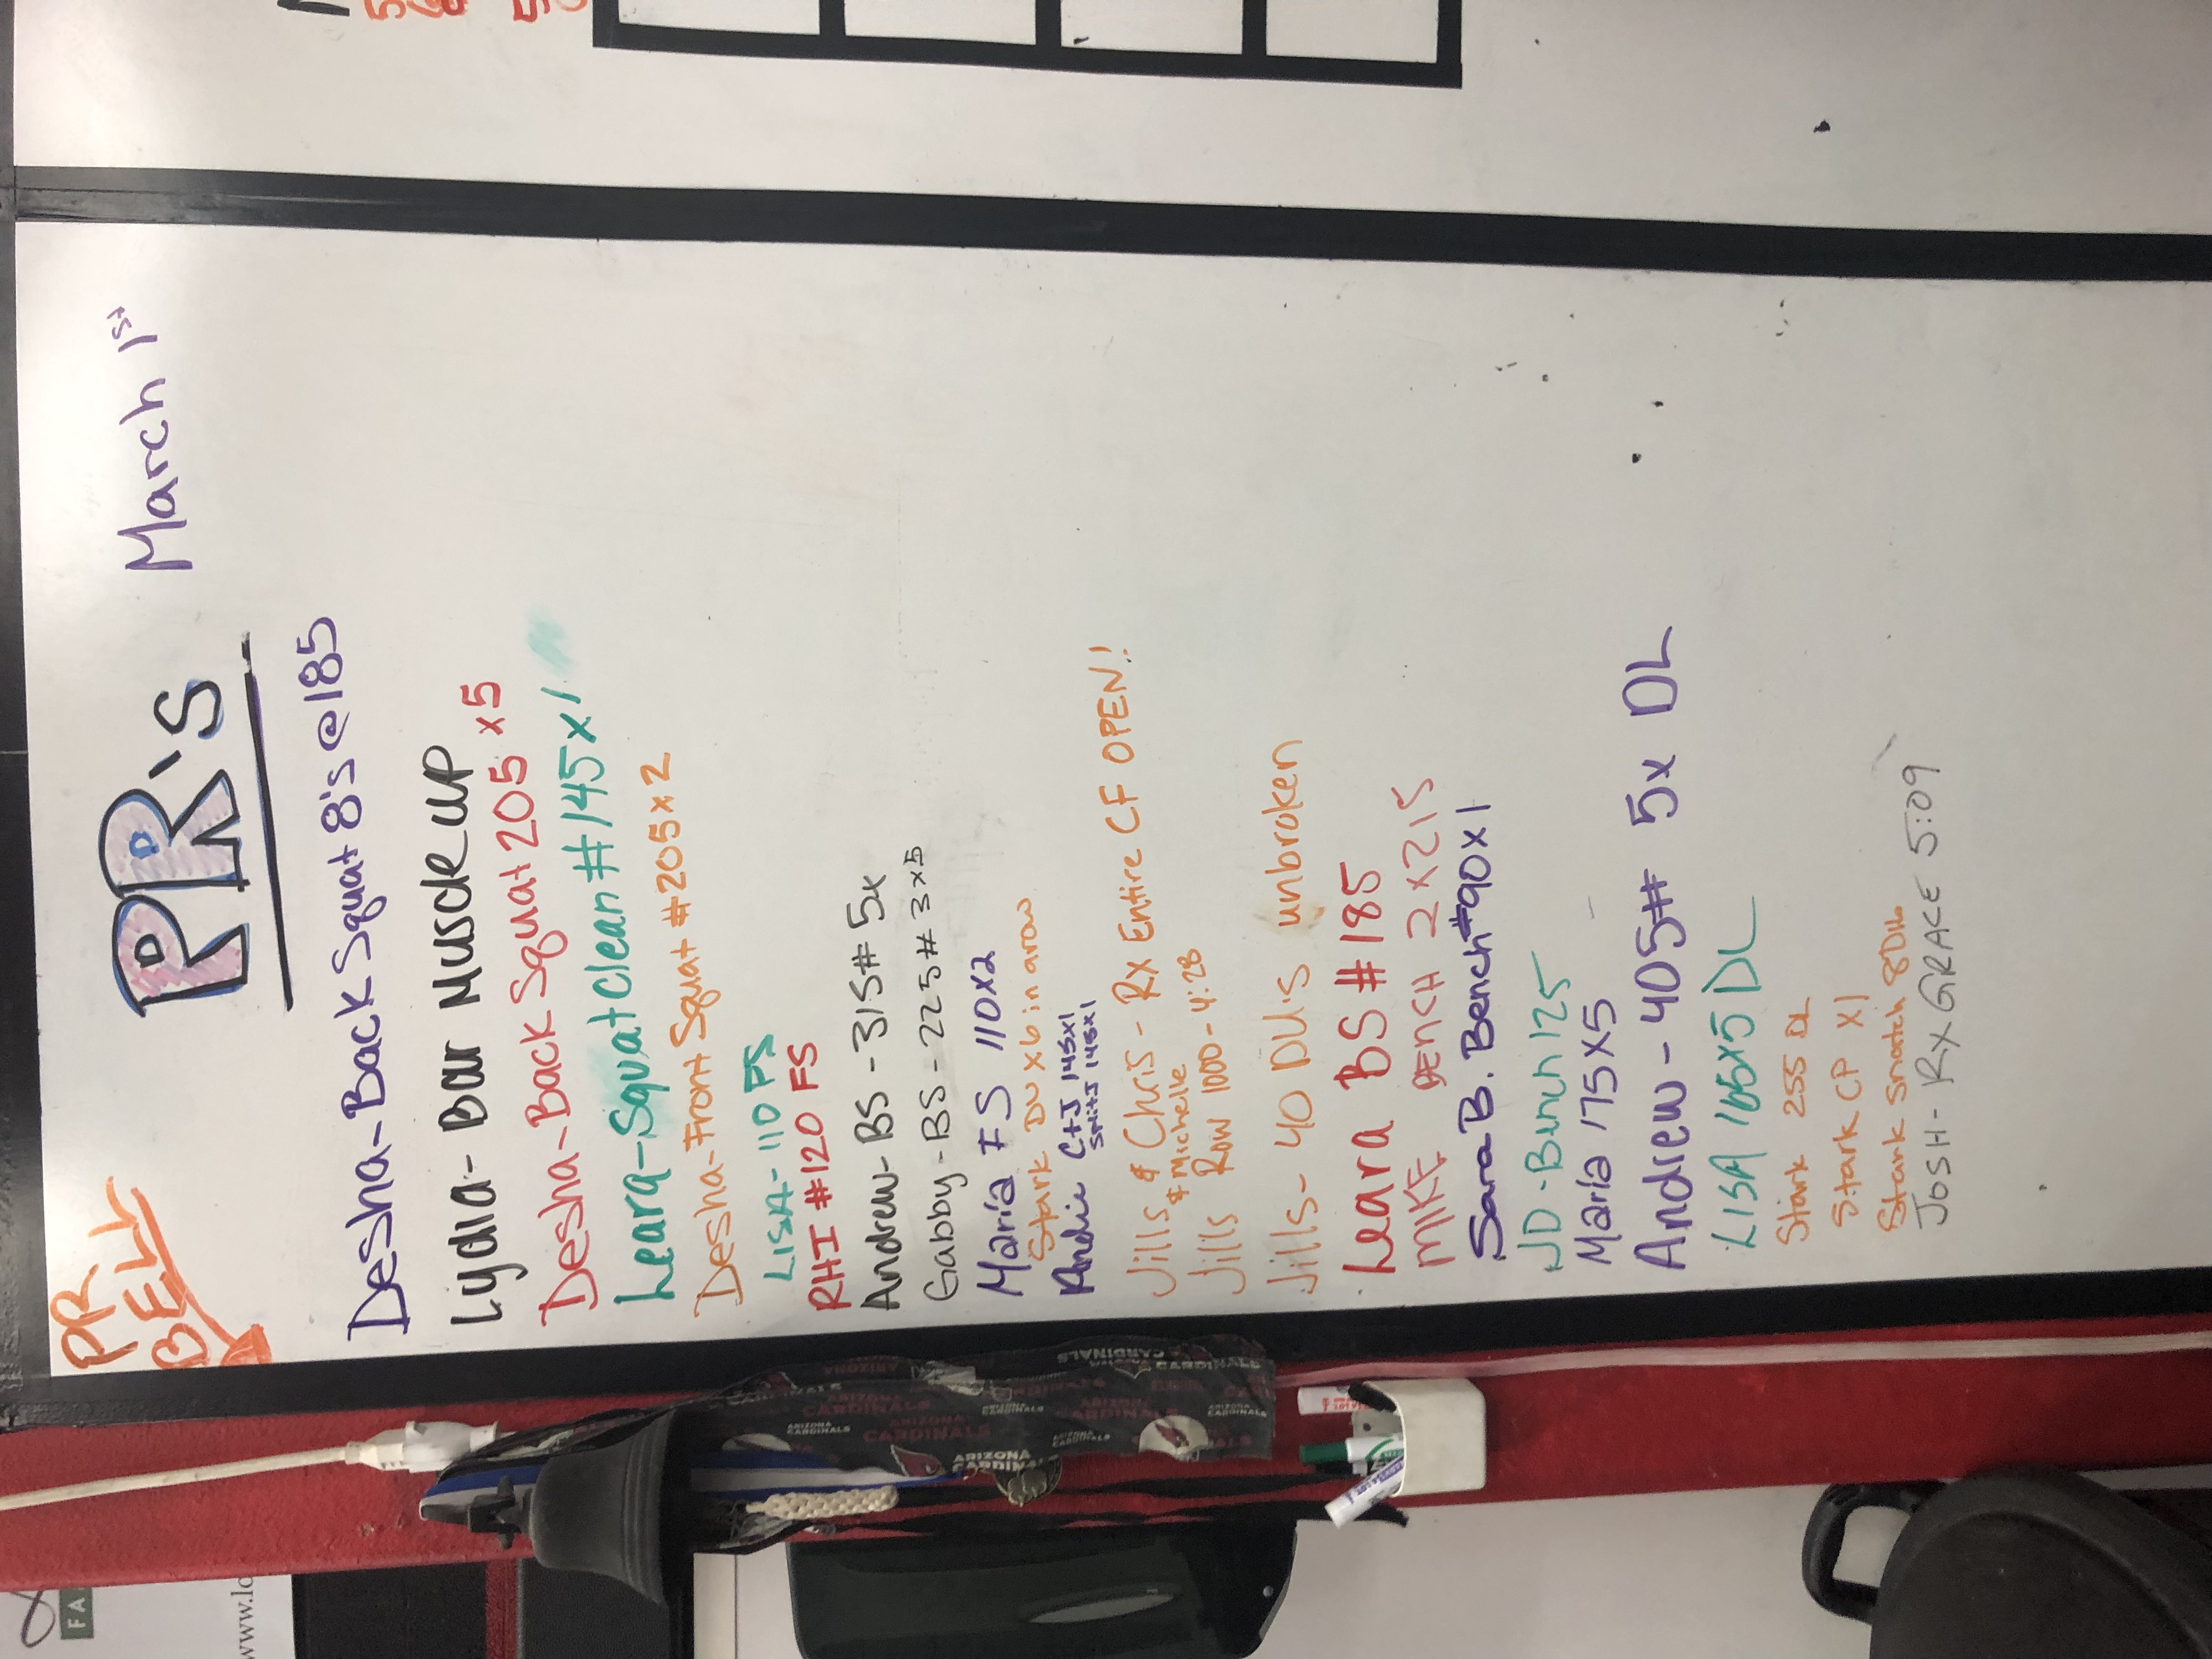 PR's
March 1st
PR
BELL
Desha-Back Squat 8's @ 185
Lydia - Bar Muscle up
Desha-Back Squat 205 x5
Leara-Squat Clean #145x1
Desha-Front Squat #205x2
LISA-110 FS
RHI #120 FS
Andrew-BS-315# 5x
Gabby-BS-225# 3x5
Maria FS 110x2
Stark DU x6 in arow
C+J 145x1
Split J 145x1
Jills & Chris - Rx Entire CF OPEN!
& Michelle
Jills Row 1000-4:28
Jills-40 DU's unbroken
Leara BS #185
MIKE BENCH 2x215
Sara B. Bench #90x1
JD-Bench 125
Maria 175x5
Andrew-405# 5x DL
LISA 165x5 DL
Stark 255 DL
Stark CP x1
Stark Snatch 80lb
JOSH-RX GRACE 5:09
ARIZONA
CARDINALS
FA
www.lo